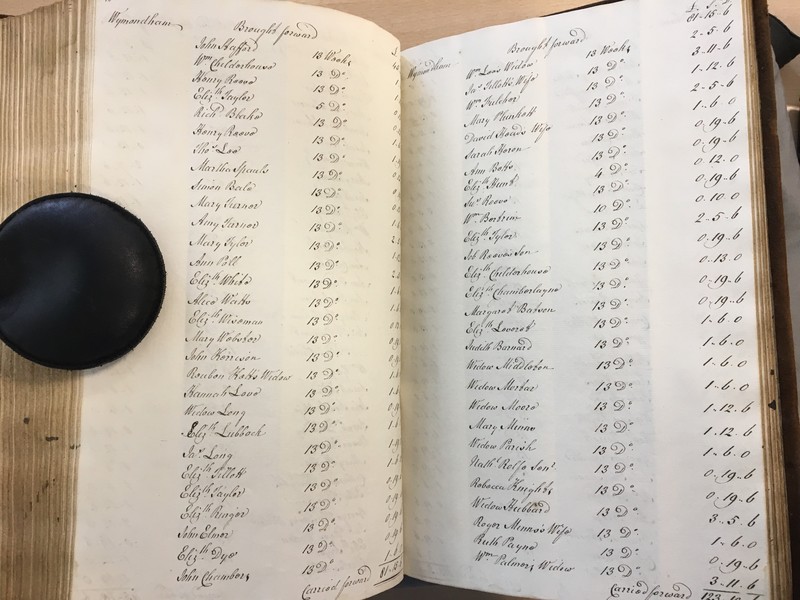 Wymondham Brought forward
John Stafford 13 Weeks
Wm. Childerhouse 13 Do.
Henry Reeve 13 Do.
Elizth. Taylor 5 Do.
Richd. Blake 13 Do.
Henry Reeve 13 Do.
Thos. Lea 13 Do.
Martha Spauls 13 Do.
Simon Bale 13 Do.
Mary Farnor 13 Do.
Amy Farnor 13 Do.
Mary Tylor 13 Do.
Ann Pell 13 Do.
Elizth. White 13 Do.
Alice Watts 13 Do.
Elizth. Wiseman 13 Do.
Mary Webster 13 Do.
John Kerrison 13 Do.
Reubon Hotts Widow 13 Do.
Hannah Love 13 Do.
Widow Long 13 Do.
Elizth. Lubbock 13 Do.
Jas. Long 13 Do.
Elizth. Tillott 13 Do.
Elizth. Taylor 13 Do.
Elizth. Burger 13 Do.
John Elmor 13 Do.
Elizth. Dye 13 Do.
John Chambers 13 Do.
Carried forward 81-15-6
Wymondham Brought forward 81-15-6
Wm. Lees Widow 13 Weeks 2-5-6
Jas. Tilletts Wife 13 Do. 3-11-6
Wm. Fulcher 13 Do. 1-12-6
Mary Plunkett 13 Do. 2-5-6
David Howes Wife 13 Do. 1-6-0
Sarah Heron 13 Do. 0-19-6
Ann Betts 13 Do. 0-19-6
Elizth. Hunt 4 Do. 0-12-0
Reeve 13 Do. 0-19-6
Wm. 10 Do. 0-10-0
Elizth. Tylor 13 Do. 2-5-6
Job Reeves Son 13 Do. 0-19-6
Elizth. Childerhouse 13 Do. 0-13-0
Elizth. Chamberlayne 13 Do. 0-19-6
Margaret Batson 13 Do. 0-19-6
Elizth. Loverot 13 Do. 1-6-0
Judith Barnard 13 Do. 1-6-0
Widow Middleton 13 Do. 1-6-0
Widow Morter 13 Do. 1-6-0
Widow Moore 13 Do. 1-12-6
Mary Minns 13 Do. 1-12-6
Widow Parish 13 Do. 1-6-0
Nathl. Rolfe Senr. 13 Do. 0-19-6
Rebecca Knights 13 Do. 0-19-6
Widow Hubbard 13 Do. 3-5-6
Roger Menns's Wife 13 Do. 1-6-0
Ruth Payne 13 Do. 0-19-6
Wm. Palmers Widow 13 Do. 3-11-6
Carried forward